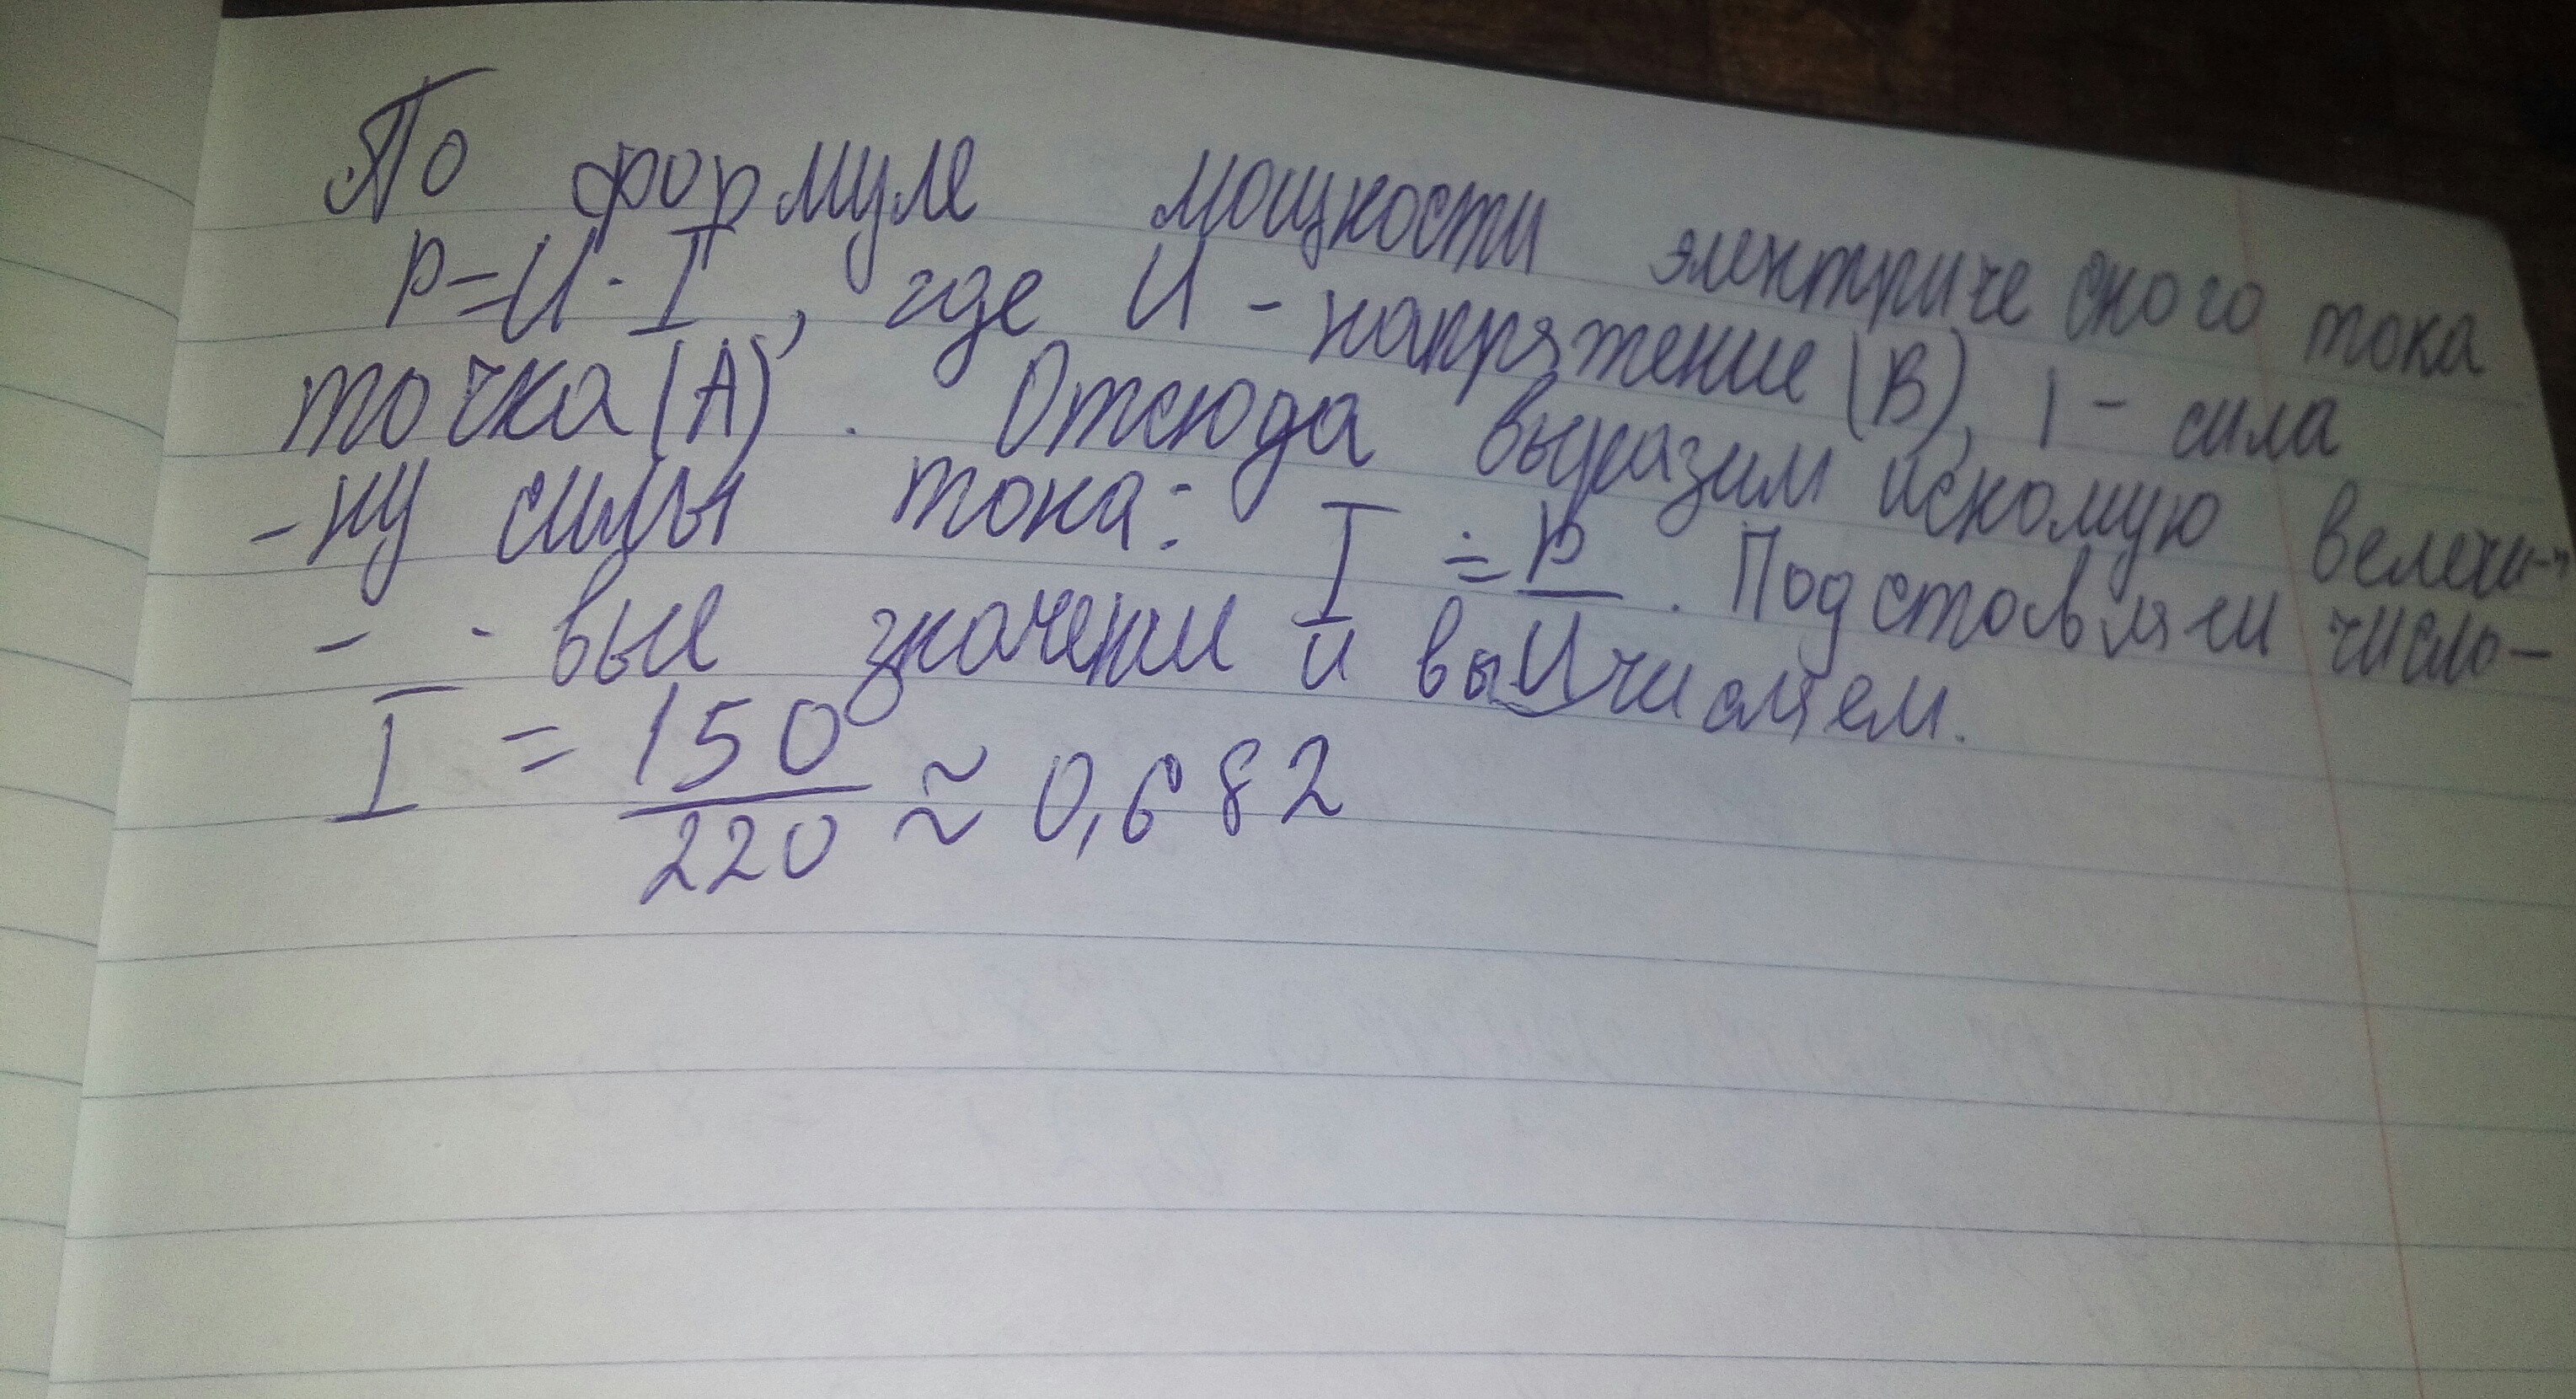 По формуле мощности электрического тока
P=U·I, где U - напряжение (В), I - сила
точка (А). Отсюда выразим искомую величи-
-ну силы тока: I = P/U. Подставляем число-
- - вые значении и вычисляем.
I = 150/220 ≈ 0,682